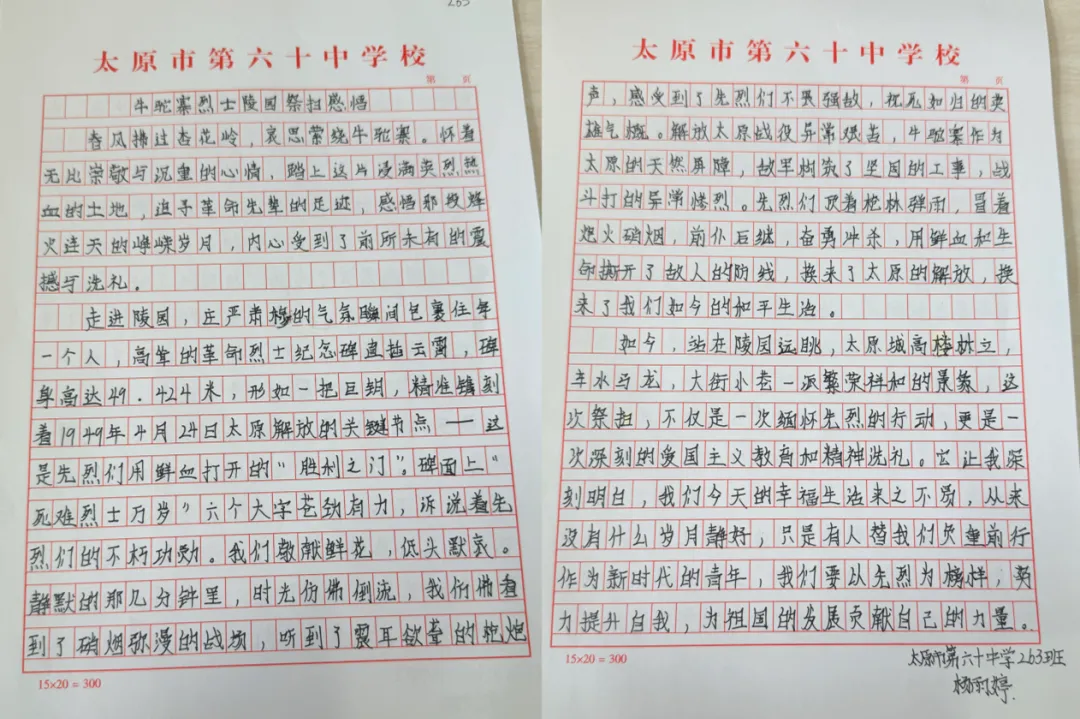 263
太原市第六十中学校
第 页
牛驼寨烈士陵园祭扫感悟
春风拂过杏花岭，哀思萦绕牛驼寨。怀着
无比崇敬与沉重的心情，踏上这片浸满英烈热
血的土地，追寻革命先辈的足迹，感悟那段烽
火连天的峥嵘岁月，内心受到了前所未有的震
撼与洗礼。
走进陵园，庄严肃穆的气氛瞬间包裹住每
一个人，高耸的革命烈士纪念碑直指云霄，碑
身高达49.424米，形如一把巨钥，精准镌刻
着1949年4月24日太原解放的关键节点——这
是先烈们用鲜血打开的“胜利之门”。碑面上“
死难烈士万岁”六个大字苍劲有力，诉说着先
烈们的不朽功勋。我们敬献鲜花，低头默哀。
静默的那几分钟里，时光仿佛倒流，我仿佛看
到了硝烟弥漫的战场，听到了震耳欲聋的枪炮
15×20=300
太原市第六十中学校
第 页
声，感受到了先烈们不畏强敌，视死如归的英
雄气概。解放太原战役异常艰苦，牛驼寨作为
太原的天然屏障，敌军构筑了坚固的工事，战
斗打的异常惨烈。先烈们顶着枪林弹雨，冒着
炮火硝烟，前仆后继，奋勇冲杀，用鲜血和生
命撕开了敌人的防线，换来了太原的解放，换
来了我们如今的和平生活。
如今，站在陵园远眺，太原城高楼林立，
车水马龙，大街小巷一派繁荣祥和的景象，这
次祭扫，不仅是一次缅怀先烈的行动，更是一
次深刻的爱国主义教育和精神洗礼。它让我深
刻明白，我们今天的幸福生活来之不易，从来
没有什么岁月静好，只是有人替我们负重前行
作为新时代的青年，我们要以先烈为榜样，努
力提升自我，为祖国的发展贡献自己的力量。
15×20=300
太原市第六十中学263班
杨婷